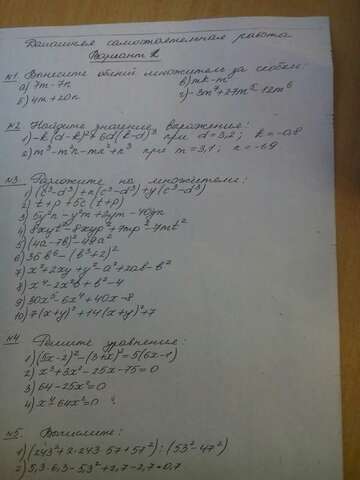 Домашняя самостоятельная работа
Вариант 2
№1. Вынесите общий множитель за скобки:
а) 7m-7n в) mk-m²
б) 4m+20n г) -3m⁴+27m⁵-12m⁶
№2. Найдите значение выражения:
при d=3,2; k=-0,8
2) m³-m²n-mn²+n³ при m=3,1; n=-6,9
№3. Разложите на множители:
1) (c³-d³)+x(c³-d³)+y(c³-d³)
2) t+p+5c(t+p)
3) 5y²n-y²m+2ym-10yn
4) 8xyt²-8xyp²+7mp²-7mt²
5) (4a-7b)²-49a²
6) 36b⁶-(b³+2)²
7) x²+2xy+y²-a²+2ab-b²
8) x⁴-2x²b+b²-4
9) 30x³-6x⁴+40x-8
10) 7(x+y)²+14(x+y)+7
№4 Решите уравнение:
1) (5x-2)²-(3+x)²=5(6x-1)
2) x³+3x²-25x-75=0
3) 64-25x²=0
4) x⁴-64x²=0
№5 Вычислите:
1) (243²+2·243·57+57²):(53²-47²)
2) 5,3·6,3-5,3²+2,7-2,7·0,7